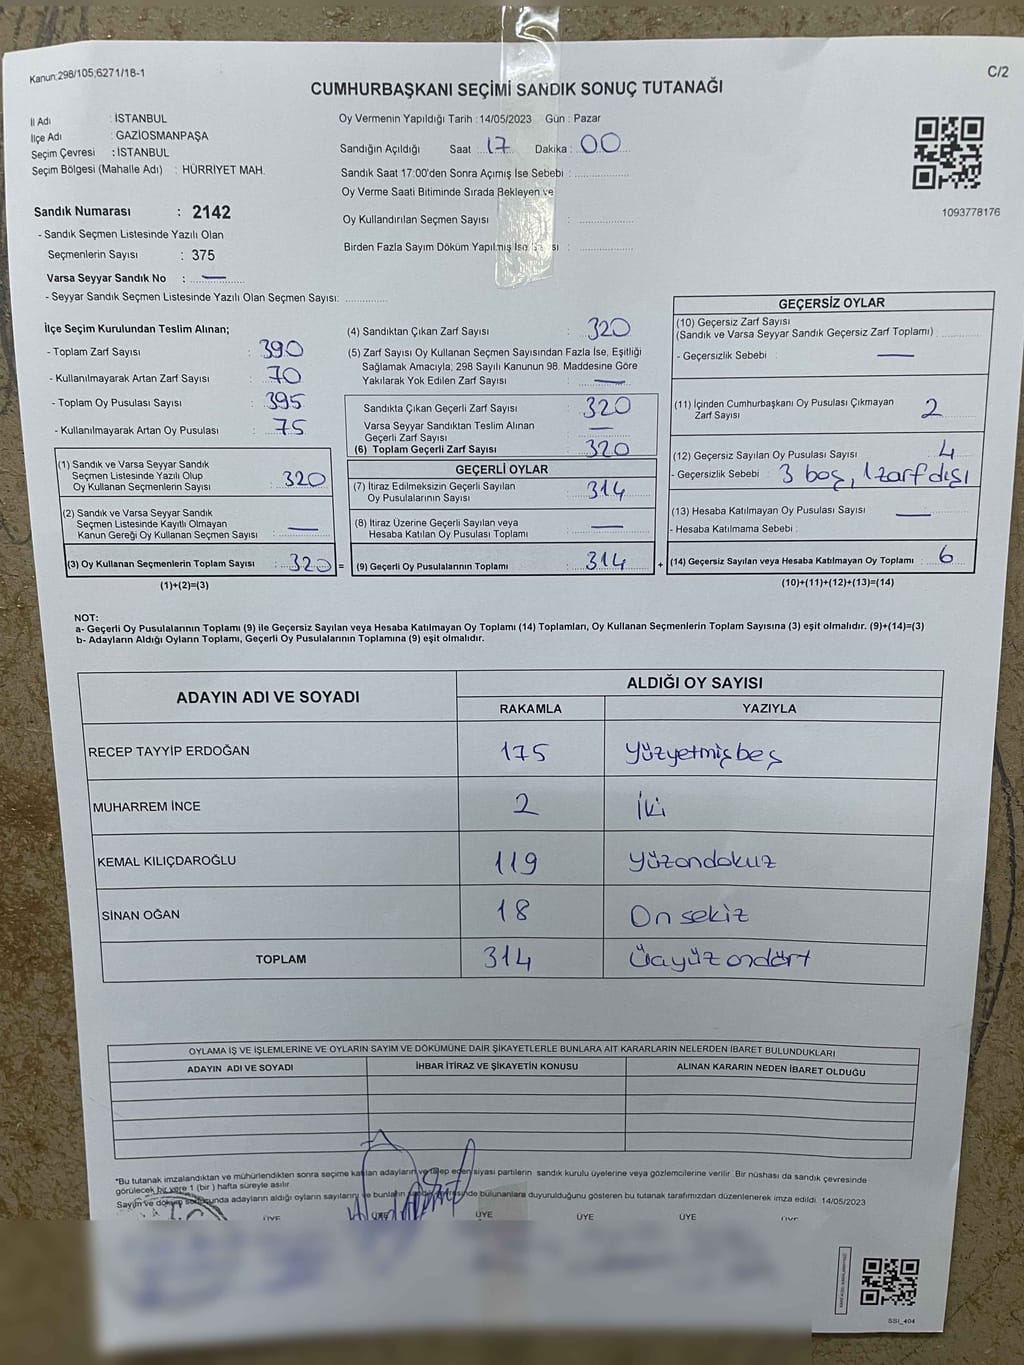 Kanun;298/105;6271/18-1
C/2
CUMHURBAŞKANI SEÇİMİ SANDIK SONUÇ TUTANAĞI
İl Adı : İSTANBUL
İlçe Adı : GAZİOSMANPAŞA
Seçim Çevresi : İSTANBUL
Seçim Bölgesi (Mahalle Adı) : HÜRRİYET MAH.
Sandık Numarası : 2142
- Sandık Seçmen Listesinde Yazılı Olan
Seçmenlerin Sayısı : 375
Varsa Seyyar Sandık No : —
- Seyyar Sandık Seçmen Listesinde Yazılı Olan Seçmen Sayısı:
Oy Vermenin Yapıldığı Tarih : 14/05/2023 Gün : Pazar
Sandığın Açıldığı Saat : 17 Dakika : 00
Sandık Saat 17:00'den Sonra Açımış İse Sebebi :
Oy Verme Saati Bitiminde Sırada Bekleyen ve
Oy Kullandırılan Seçmen Sayısı :
Birden Fazla Sayım Döküm Yapılmış İse
1093778176
İlçe Seçim Kurulundan Teslim Alınan;
- Toplam Zarf Sayısı : 390
- Kullanılmayarak Artan Zarf Sayısı : 70
- Toplam Oy Pusulası Sayısı : 395
- Kullanılmayarak Artan Oy Pusulası : 75
(1) Sandık ve Varsa Seyyar Sandık
Seçmen Listesinde Yazılı Olup
Oy Kullanan Seçmenlerin Sayısı : 320
(2) Sandık ve Varsa Seyyar Sandık
Seçmen Listesinde Kayıtlı Olmayan
Kanun Gereği Oy Kullanan Seçmen Sayısı : —
(3) Oy Kullanan Seçmenlerin Toplam Sayısı : 320 =
(1)+(2)=(3)
(4) Sandıktan Çıkan Zarf Sayısı : 320
(5) Zarf Sayısı Oy Kullanan Seçmen Sayısından Fazla İse, Eşitliği
Sağlamak Amacıyla; 298 Sayılı Kanunun 98. Maddesine Göre
Yakılarak Yok Edilen Zarf Sayısı : —
Sandıkta Çıkan Geçerli Zarf Sayısı : 320
Varsa Seyyar Sandıktan Teslim Alınan
Geçerli Zarf Sayısı : —
(6) Toplam Geçerli Zarf Sayısı : 320
GEÇERLİ OYLAR
(7) İtiraz Edilmeksizin Geçerli Sayılan
Oy Pusulalarının Sayısı : 314
(8) İtiraz Üzerine Geçerli Sayılan veya
Hesaba Katılan Oy Pusulası Toplamı : —
(9) Geçerli Oy Pusulalarının Toplamı : 314 +
GEÇERSİZ OYLAR
(10) Geçersiz Zarf Sayısı
(Sandık ve Varsa Seyyar Sandık Geçersiz Zarf Toplamı) :
- Geçersizlik Sebebi : —
(11) İçinden Cumhurbaşkanı Oy Pusulası Çıkmayan
Zarf Sayısı : 2
(12) Geçersiz Sayılan Oy Pusulası Sayısı : 4
- Geçersizlik Sebebi : 3 boş, 1 zarf dışı
(13) Hesaba Katılmayan Oy Pusulası Sayısı : —
- Hesaba Katılmama Sebebi :
(14) Geçersiz Sayılan veya Hesaba Katılmayan Oy Toplamı : 6
(10)+(11)+(12)+(13)=(14)
NOT:
a- Geçerli Oy Pusulalarının Toplamı (9) ile Geçersiz Sayılan veya Hesaba Katılmayan Oy Toplamı (14) Toplamları, Oy Kullanan Seçmenlerin Toplam Sayısına (3) eşit olmalıdır. (9)+(14)=(3)
b- Adayların Aldığı Oyların Toplamı, Geçerli Oy Pusulalarının Toplamına (9) eşit olmalıdır.
ADAYIN ADI VE SOYADI ALDIĞI OY SAYISI
RAKAMLA YAZIYLA
RECEP TAYYİP ERDOĞAN 175 Yüzyetmişbeş
MUHARREM İNCE 2 İki
KEMAL KILIÇDAROĞLU 119 Yüzondokuz
SİNAN OĞAN 18 On sekiz
TOPLAM 314 Üçyüz ondört
OYLAMA İŞ VE İŞLEMLERİNE VE OYLARIN SAYIM VE DÖKÜMÜNE DAİR ŞİKAYETLERLE BUNLARA AİT KARARLARIN NELERDEN İBARET BULUNDUKLARI
ADAYIN ADI VE SOYADI İHBAR İTİRAZ VE ŞİKAYETİN KONUSU ALINAN KARARIN NEDEN İBARET OLDUĞU
*Bu tutanak imzalandıktan ve mühürlendikten sonra seçime katılan adayların ve talep eden siyasi partilerin sandık kurulu üyelerine veya gözlemcilerine verilir. Bir nüshası da sandık çevresinde
görülecek bir yere 1 (bir) hafta süreyle asılır.
Sayım ve döküm adayların aldığı oyların sayılarını ve bunların bulunanlara duyurulduğunu gösteren bu tutanak tarafımızdan düzenlenerek imza edildi. 14/05/2023
ÜYE ÜYE ÜYE ÜYE ÜYE
SSI_404